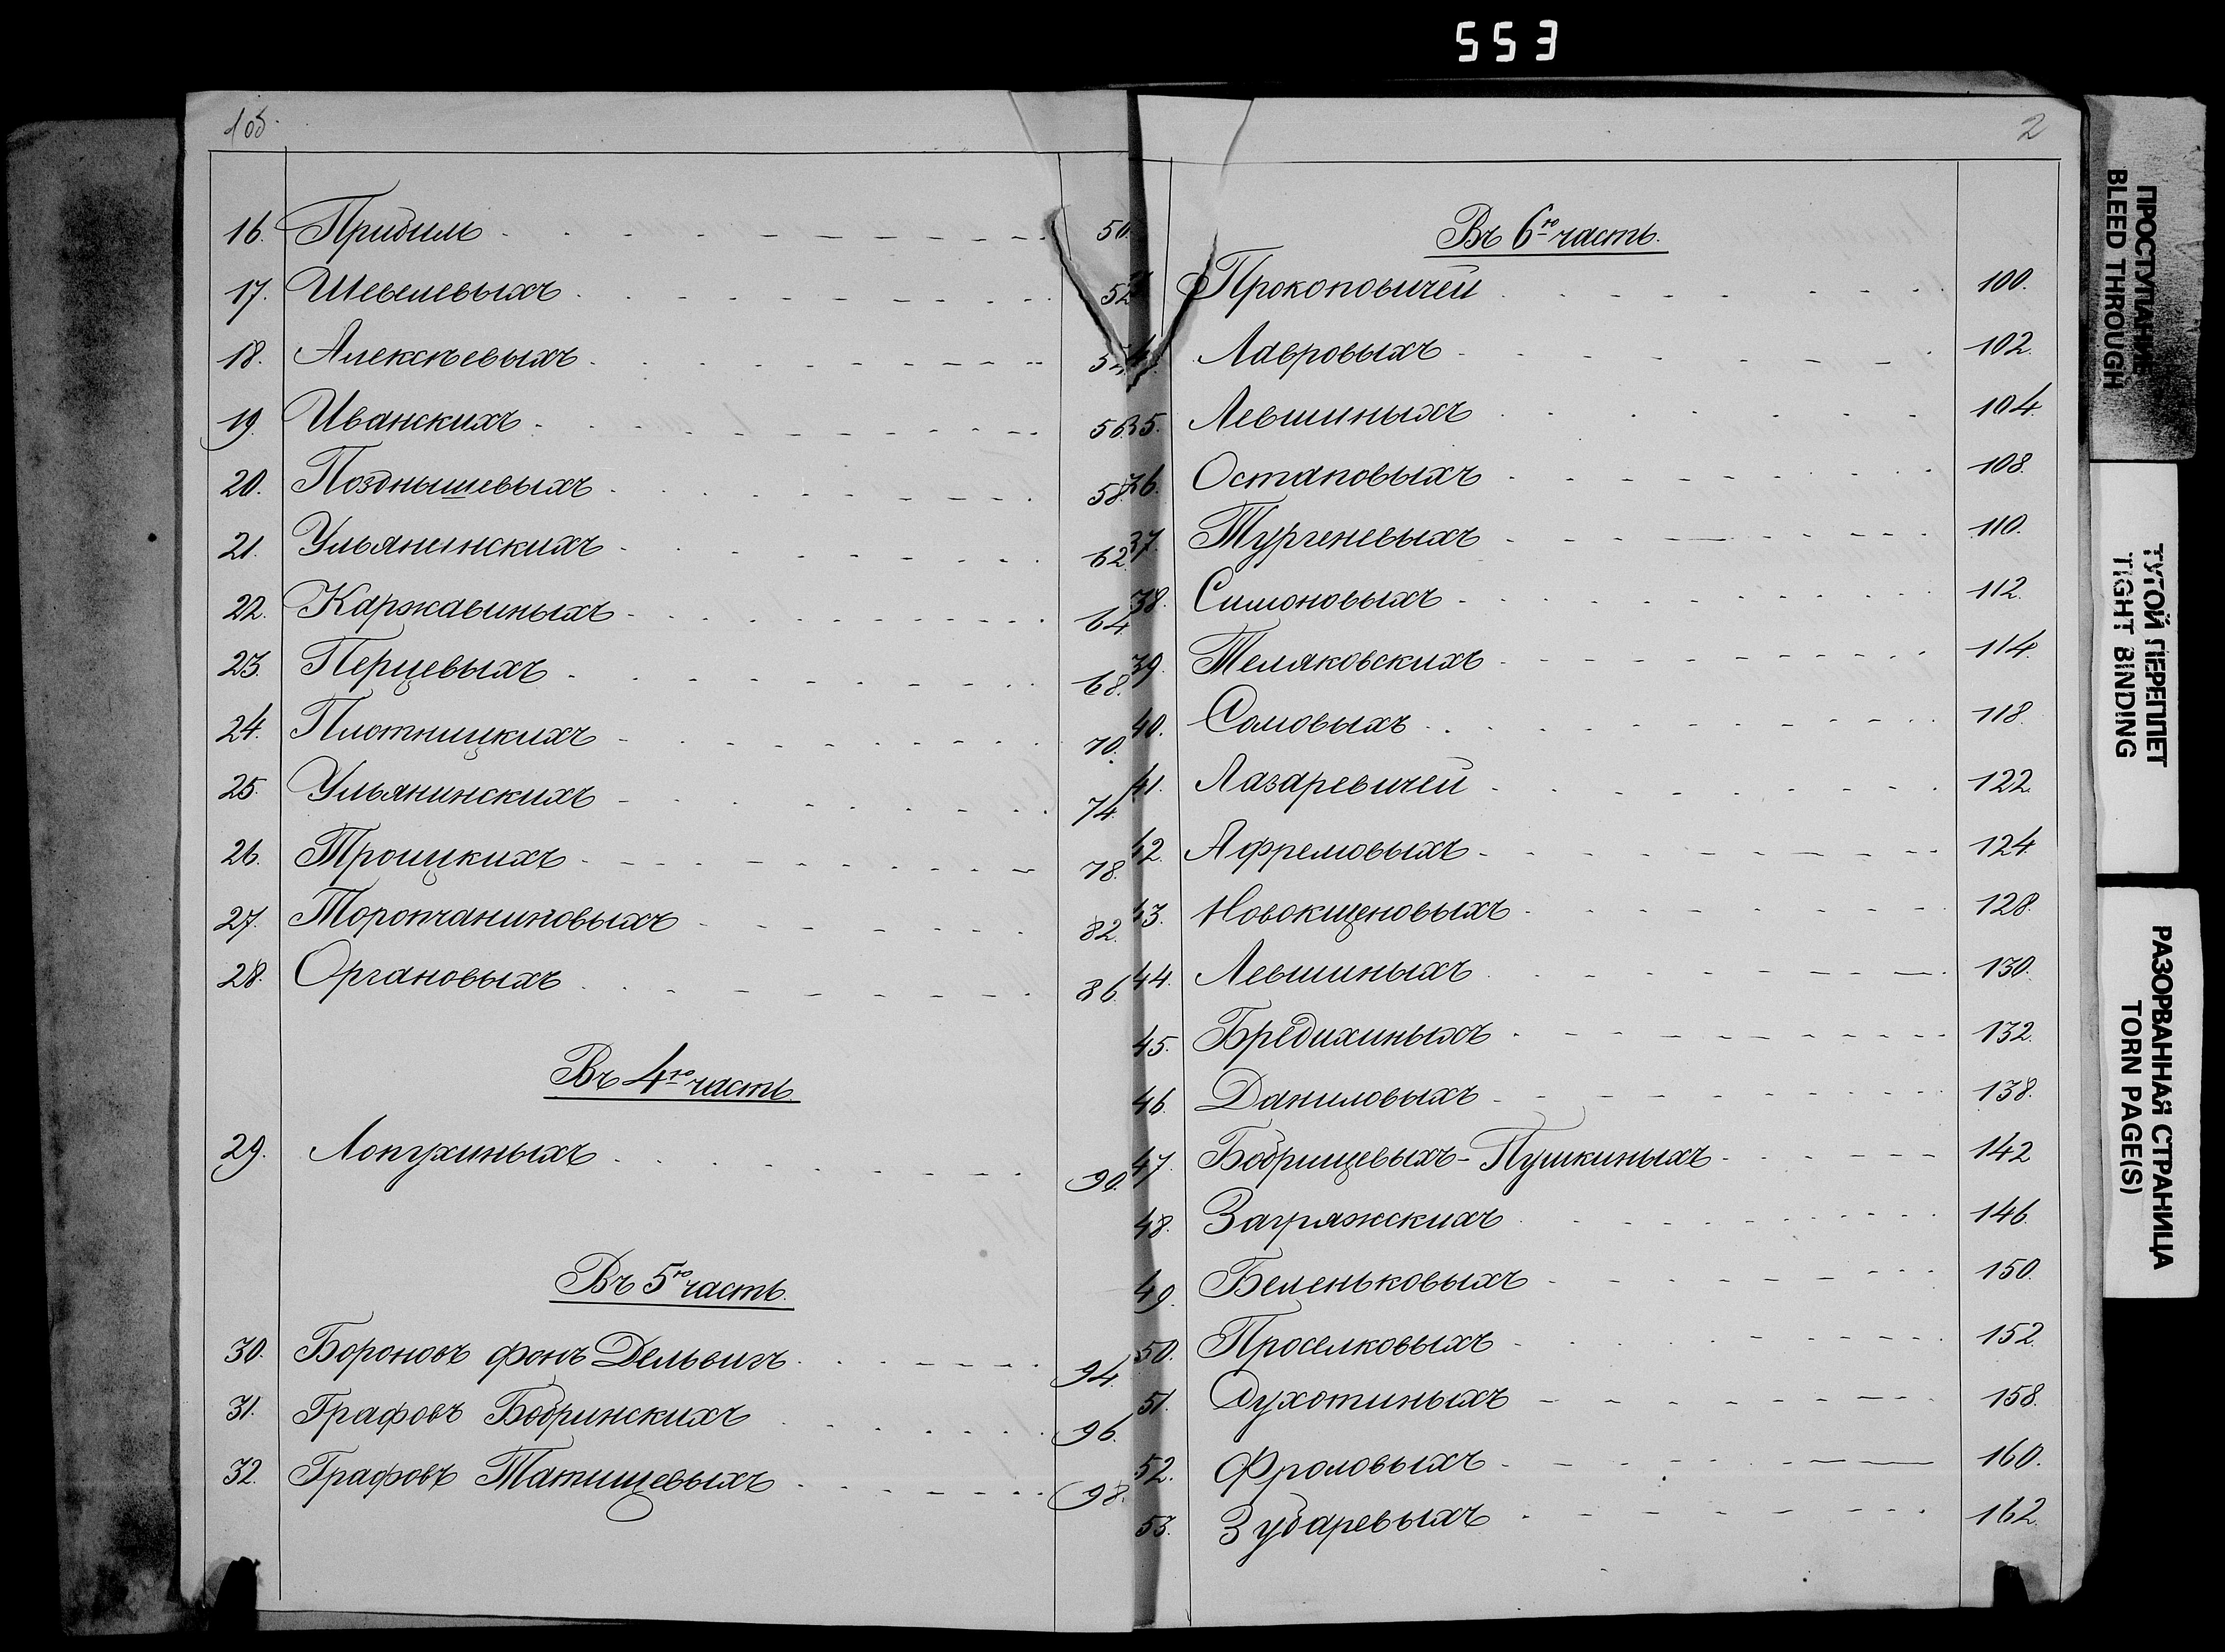 553
1об.
16. Прибиль 50.
17. Шевелевыхъ 52
18. Алексѣевыхъ 54.
19. Иванскихъ 56.
20. Позднышевыхъ 58.
21. Ульянинскихъ 62.
22. Каржавиныхъ 64.
23. Перцевыхъ 68.
24. Плотницкихъ 70.
25. Ульянинскихъ 74.
26. Троицкихъ 78.
27. Торопчаниновыхъ 82.
28. Органовыхъ 86.
Въ 4ю часть.
29. Лопухиныхъ 90.
Въ 5ю часть.
30. Бороновъ фонъ Дельвигъ 94.
31. Графовъ Бобринскихъ 96.
32. Графовъ Татищевыхъ 98.
2
Въ 6ю часть.
Прокоповичей 100.
Лавровыхъ 102.
35. Левшиныхъ 104.
36. Остаповыхъ 108.
37. Тургеневыхъ 110.
38. Симоновыхъ 112.
39. Теляковскихъ 114.
40. Сомовыхъ 118.
41. Лазаревичей 122.
42. Афремовыхъ 124.
43. Новокщеновыхъ 128.
44. Левшиныхъ 130.
45. Бредихиныхъ 132.
46. Даниловыхъ 138.
47. Бобрищевыхъ-Пушкиныхъ 142
48. Загряжскихъ 146.
49. Беленьковыхъ 150.
50. Проселковыхъ 152.
51. Сухотиныхъ 158.
52. Фроловыхъ 160.
53. Зубаревыхъ 162.
ПРОСТУПАНИЕ
BLEED THROUGH
ТУГОЙ ПЕРЕПЛЕТ
TIGHT BINDING
РАЗОРВАННАЯ СТРАНИЦА
TORN PAGE(S)